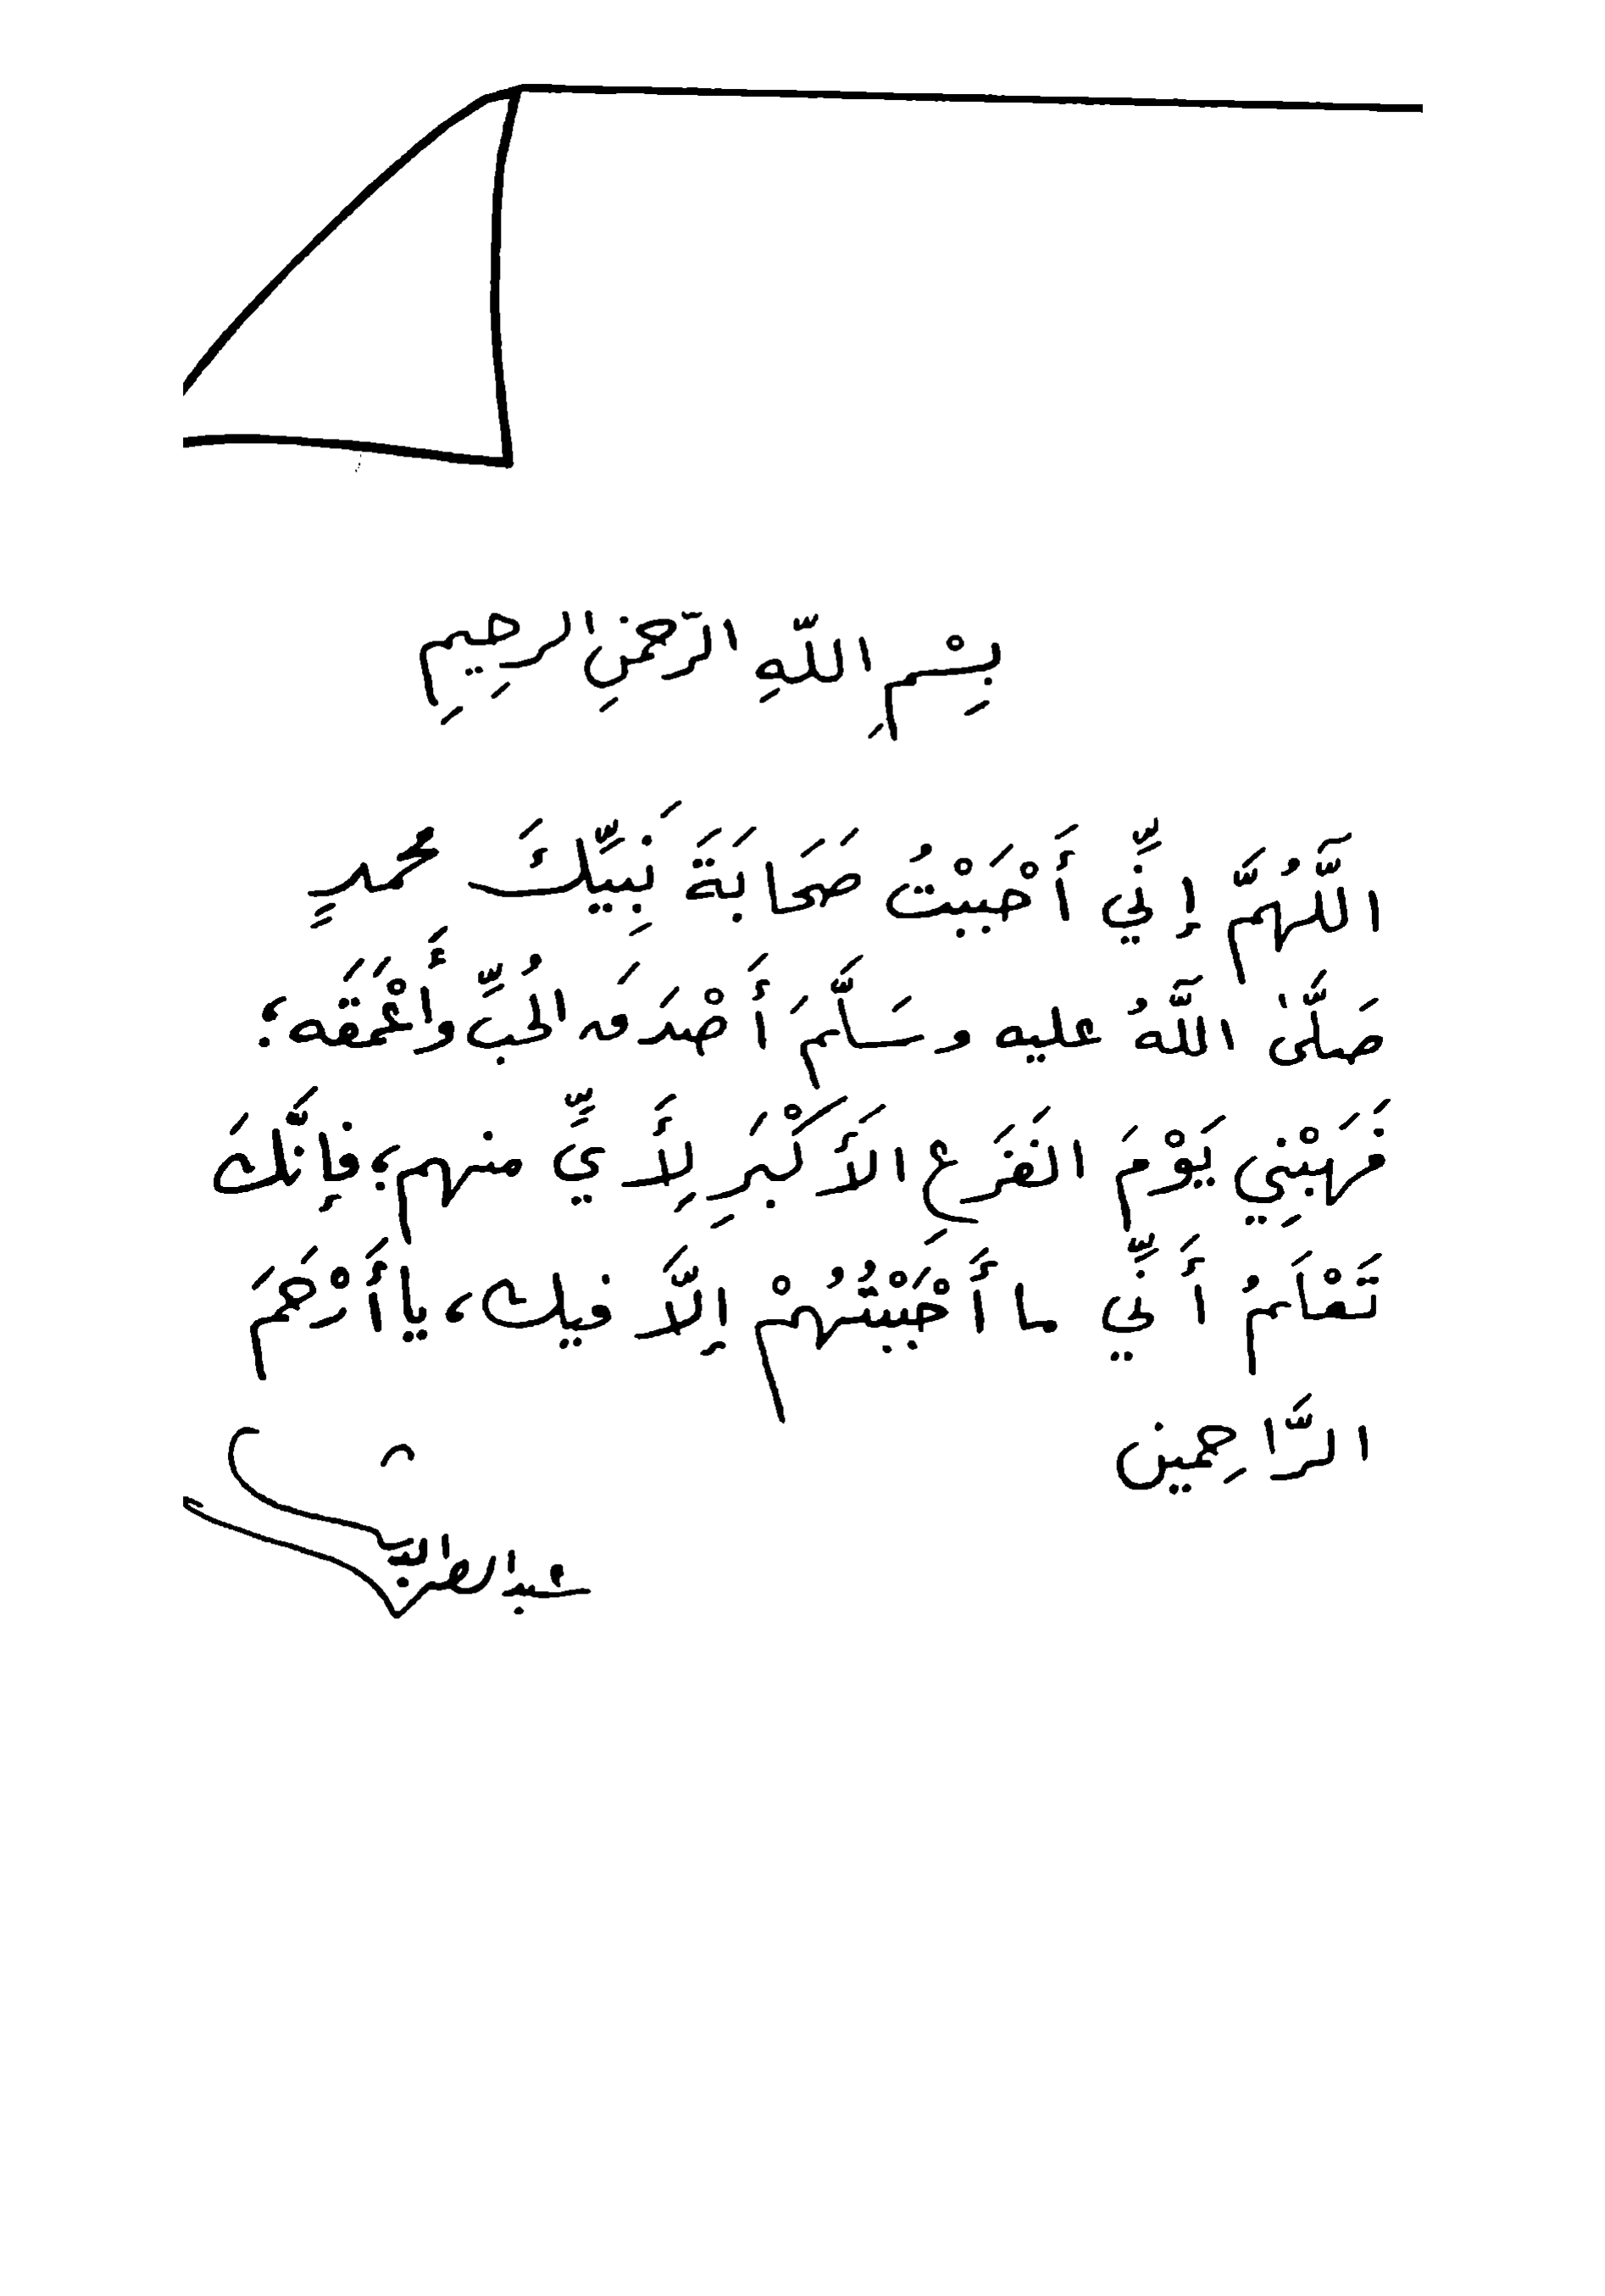 بِسْمِ اللّهِ الرّحمٰنِ الرحِيمِ
اللَّهُمَّ إنِّي أَحْبَبْتُ صَحَابَةَ نَبِيِّكَ محمدٍ
صَلَّىٰ اللَّهُ عليه وسَلَّمَ أَصْدَقَ الحُبِّ وأَعْمَقَه؛
فَهَبْنِي يَوْمَ الفَزَعِ الأَكْبَرِ لِأَيٍّ منهم؛ فإنَّكَ
تَعْلَمُ أَنِّي ما أَحْبَبْتُهُمْ إلَّا فيك، يا أَرْحَمَ
الرَّاحِمين